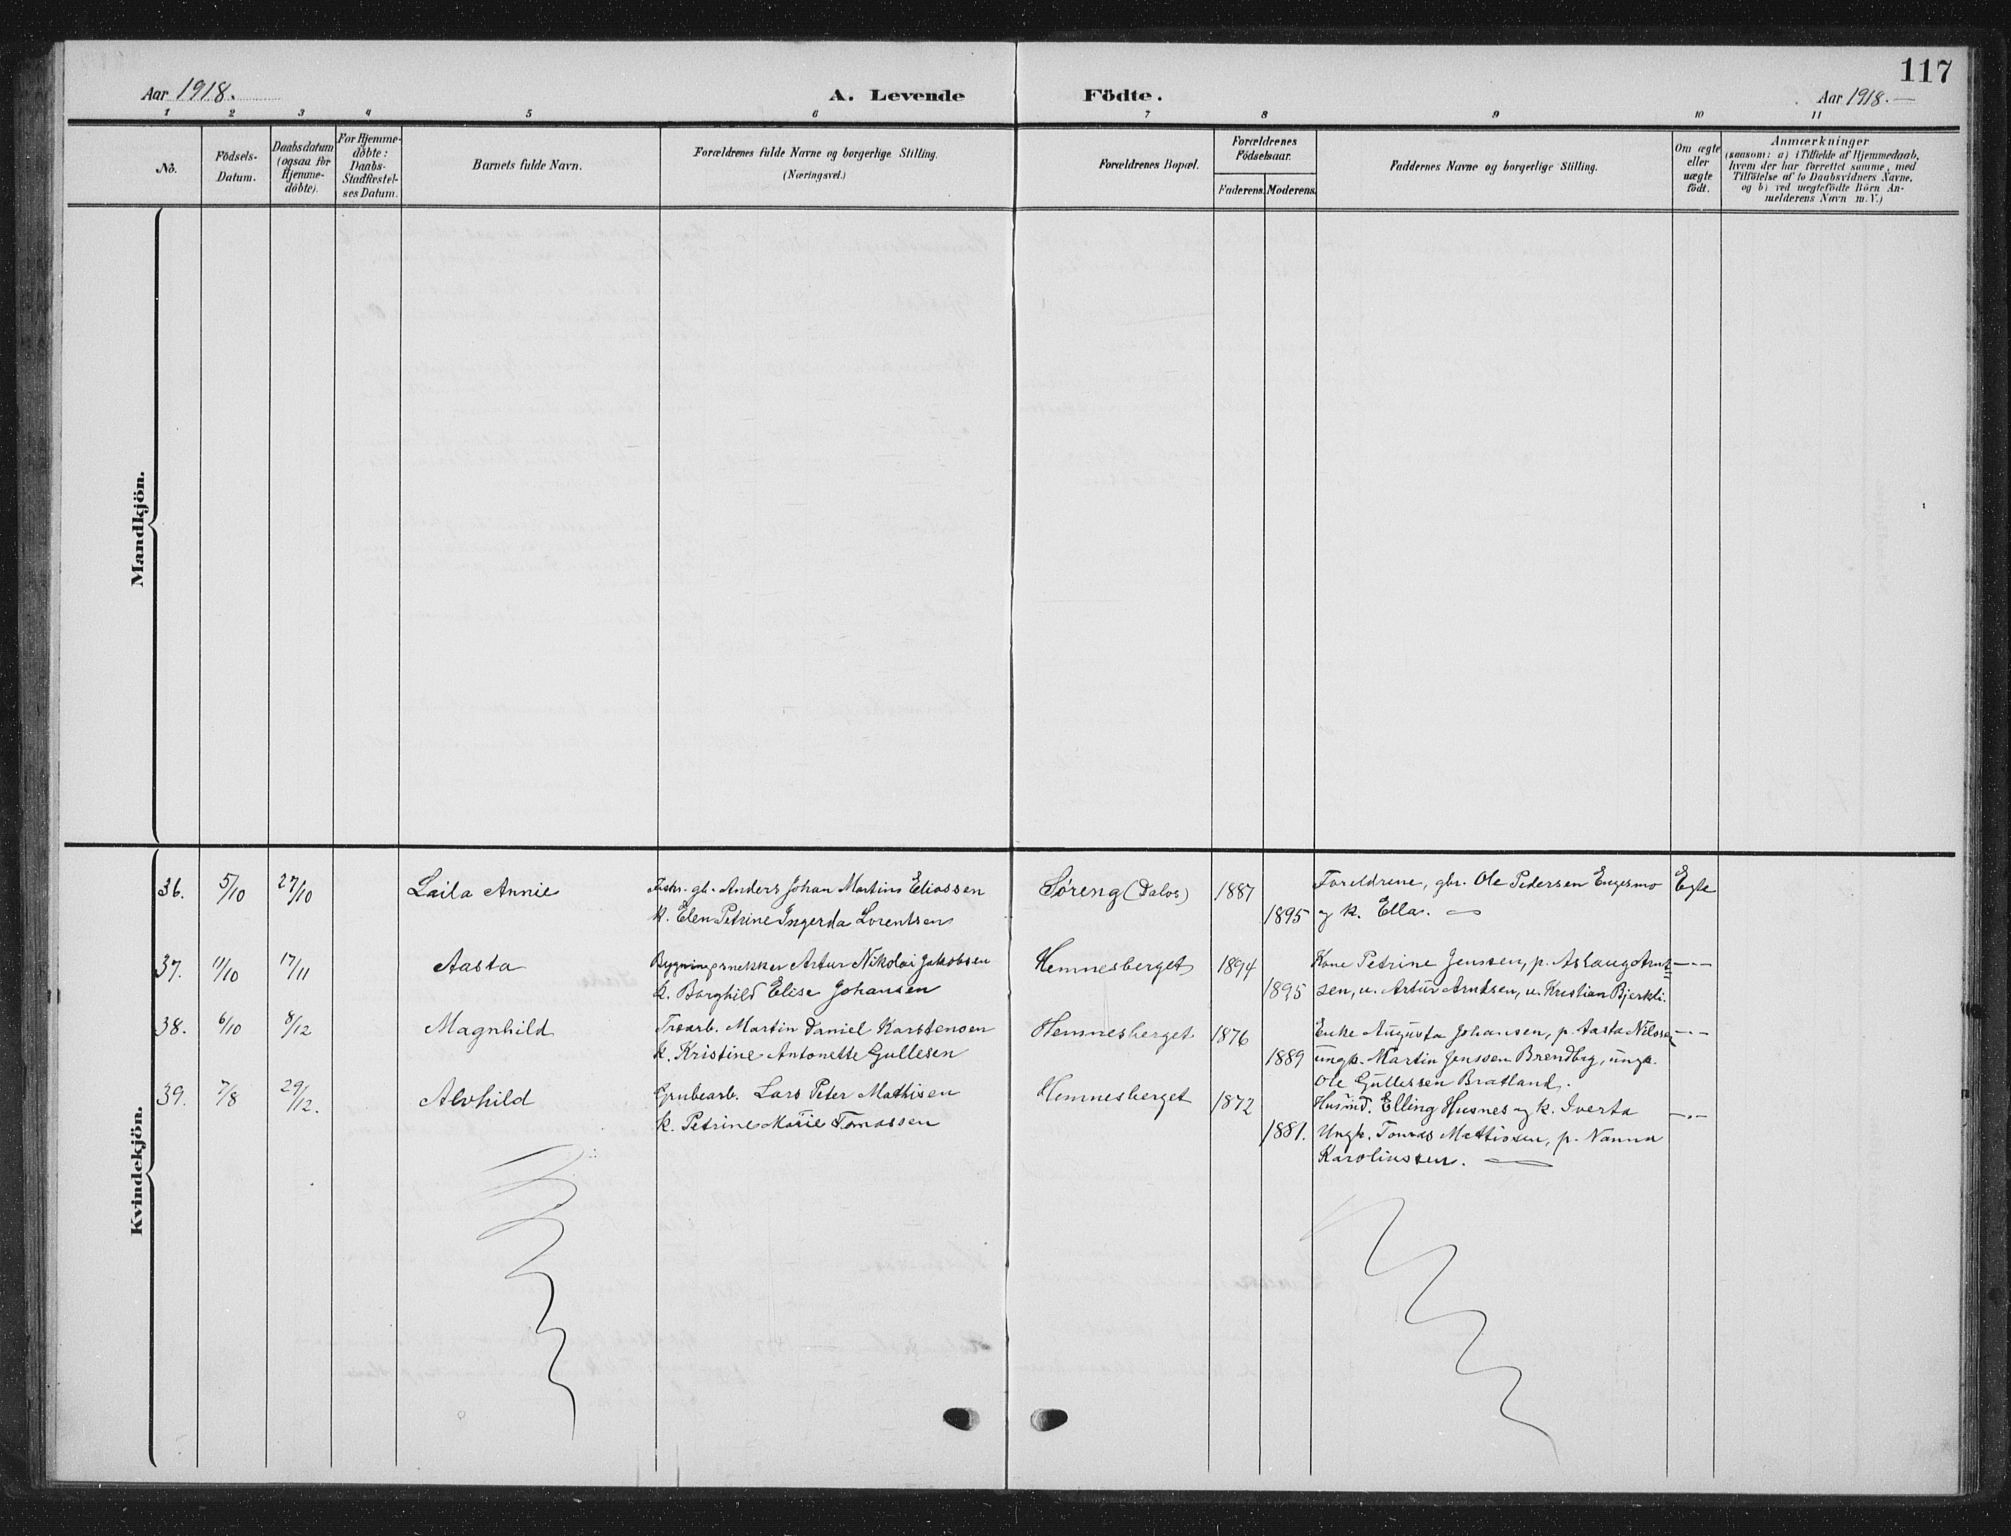 117
Aar 1918.
A. Levende Födte.
Aar 1918.
1 2 3 4 5 6 7 8 9 10 11
No.
Födsels-
Datum.
Daabsdatum
(ogsaa for
Hjemme-
döbte).
For Hjemme-
döbte:
Daabs-
Stadfæstel-
ses Datum.
Barnets fulde Navn.
Forældrenes fulde Navne og borgerlige Stilling.
(Næringsvei.)
Forældrenes Bopæl.
Forældrenes
Födselsaar.
Faderens. Moderens.
Faddernes Navne og borgerlige Stilling.
Om ægte
eller
uægte
født.
Anmærkninger
(saasom: a) i Tilfælde af Hjemmedaab,
hvem der har forrettet samme, med
Tilföielse af to Daabsvidners Navne.
og b) ved uægtefödte Börn An-
melderens Navn m. V.)
Mandkjön.
Kvindekjön.
36. 5/10 27/10 Laila Annie
Fiskr. gb. Anders Johan Martins Eliassen
k. Elen Petrine Ingerda Lorentsen
Søreng (Dalos) 1887
1895
Foreldrene, gbr. Ole Pedersen Engesmo
og k. Ella.
Egte
37. 11/10 17/11 Aasta
Bygningsnekker Artur Nikolai Jakobsen
k. Borghild Elise Johansen
Hemnesberget 1894
1895
Kone Petrine Jenssen, p. Aslaug Arnt=
sen, u. Artur Arntsen, u. Kristian Bjerkli.
—"—
38. 6/10 8/12 Magnhild
Træarb. Martin Daniel Karstensen
k. Kristine Antonette Gullesen
Hemnesberget 1876
1889
Enke Augusta Johansen, p. Aasta Nilssen
ungk. Martin Jenssen Brendbg, ungk.
Ole Gullessen Bratland.
—"—
39. 7/8 29/12. Alvhild
Grubearb. Lars Peter Mathisen
k. Petrine Marie Tomassen
Hemnesberget 1872
1881.
Husmd. Elling Husnes og k. Iverta
Ungk. Tomas Mattissen, p. Nanna
Karolinssen.
—"—